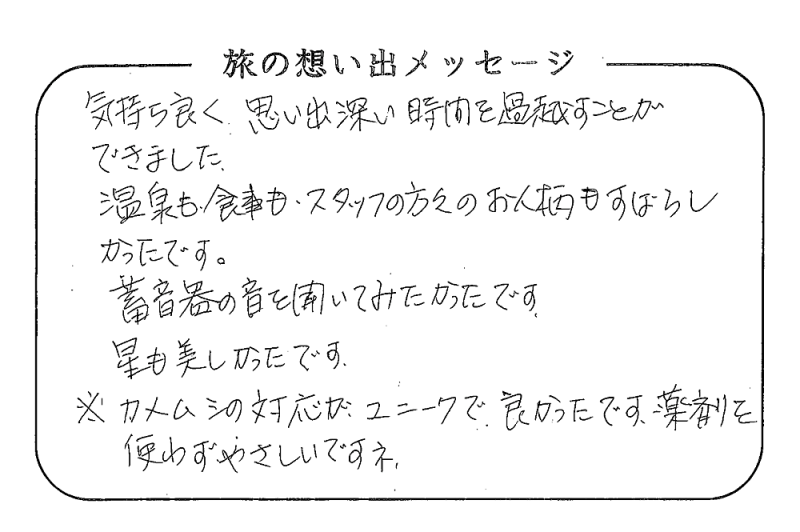 旅の想い出メッセージ
気持ち良く、思い出深い時間を過越すことが
できました。
温泉も・食事も・スタッフの方々のお人柄もすばらし
かったです。
蓄音器の音を聞いてみたかったです。
星も美しかったです。
※ カメムシの対応が、ユニークで、良かったです。薬剤を
使わずやさしいですネ。